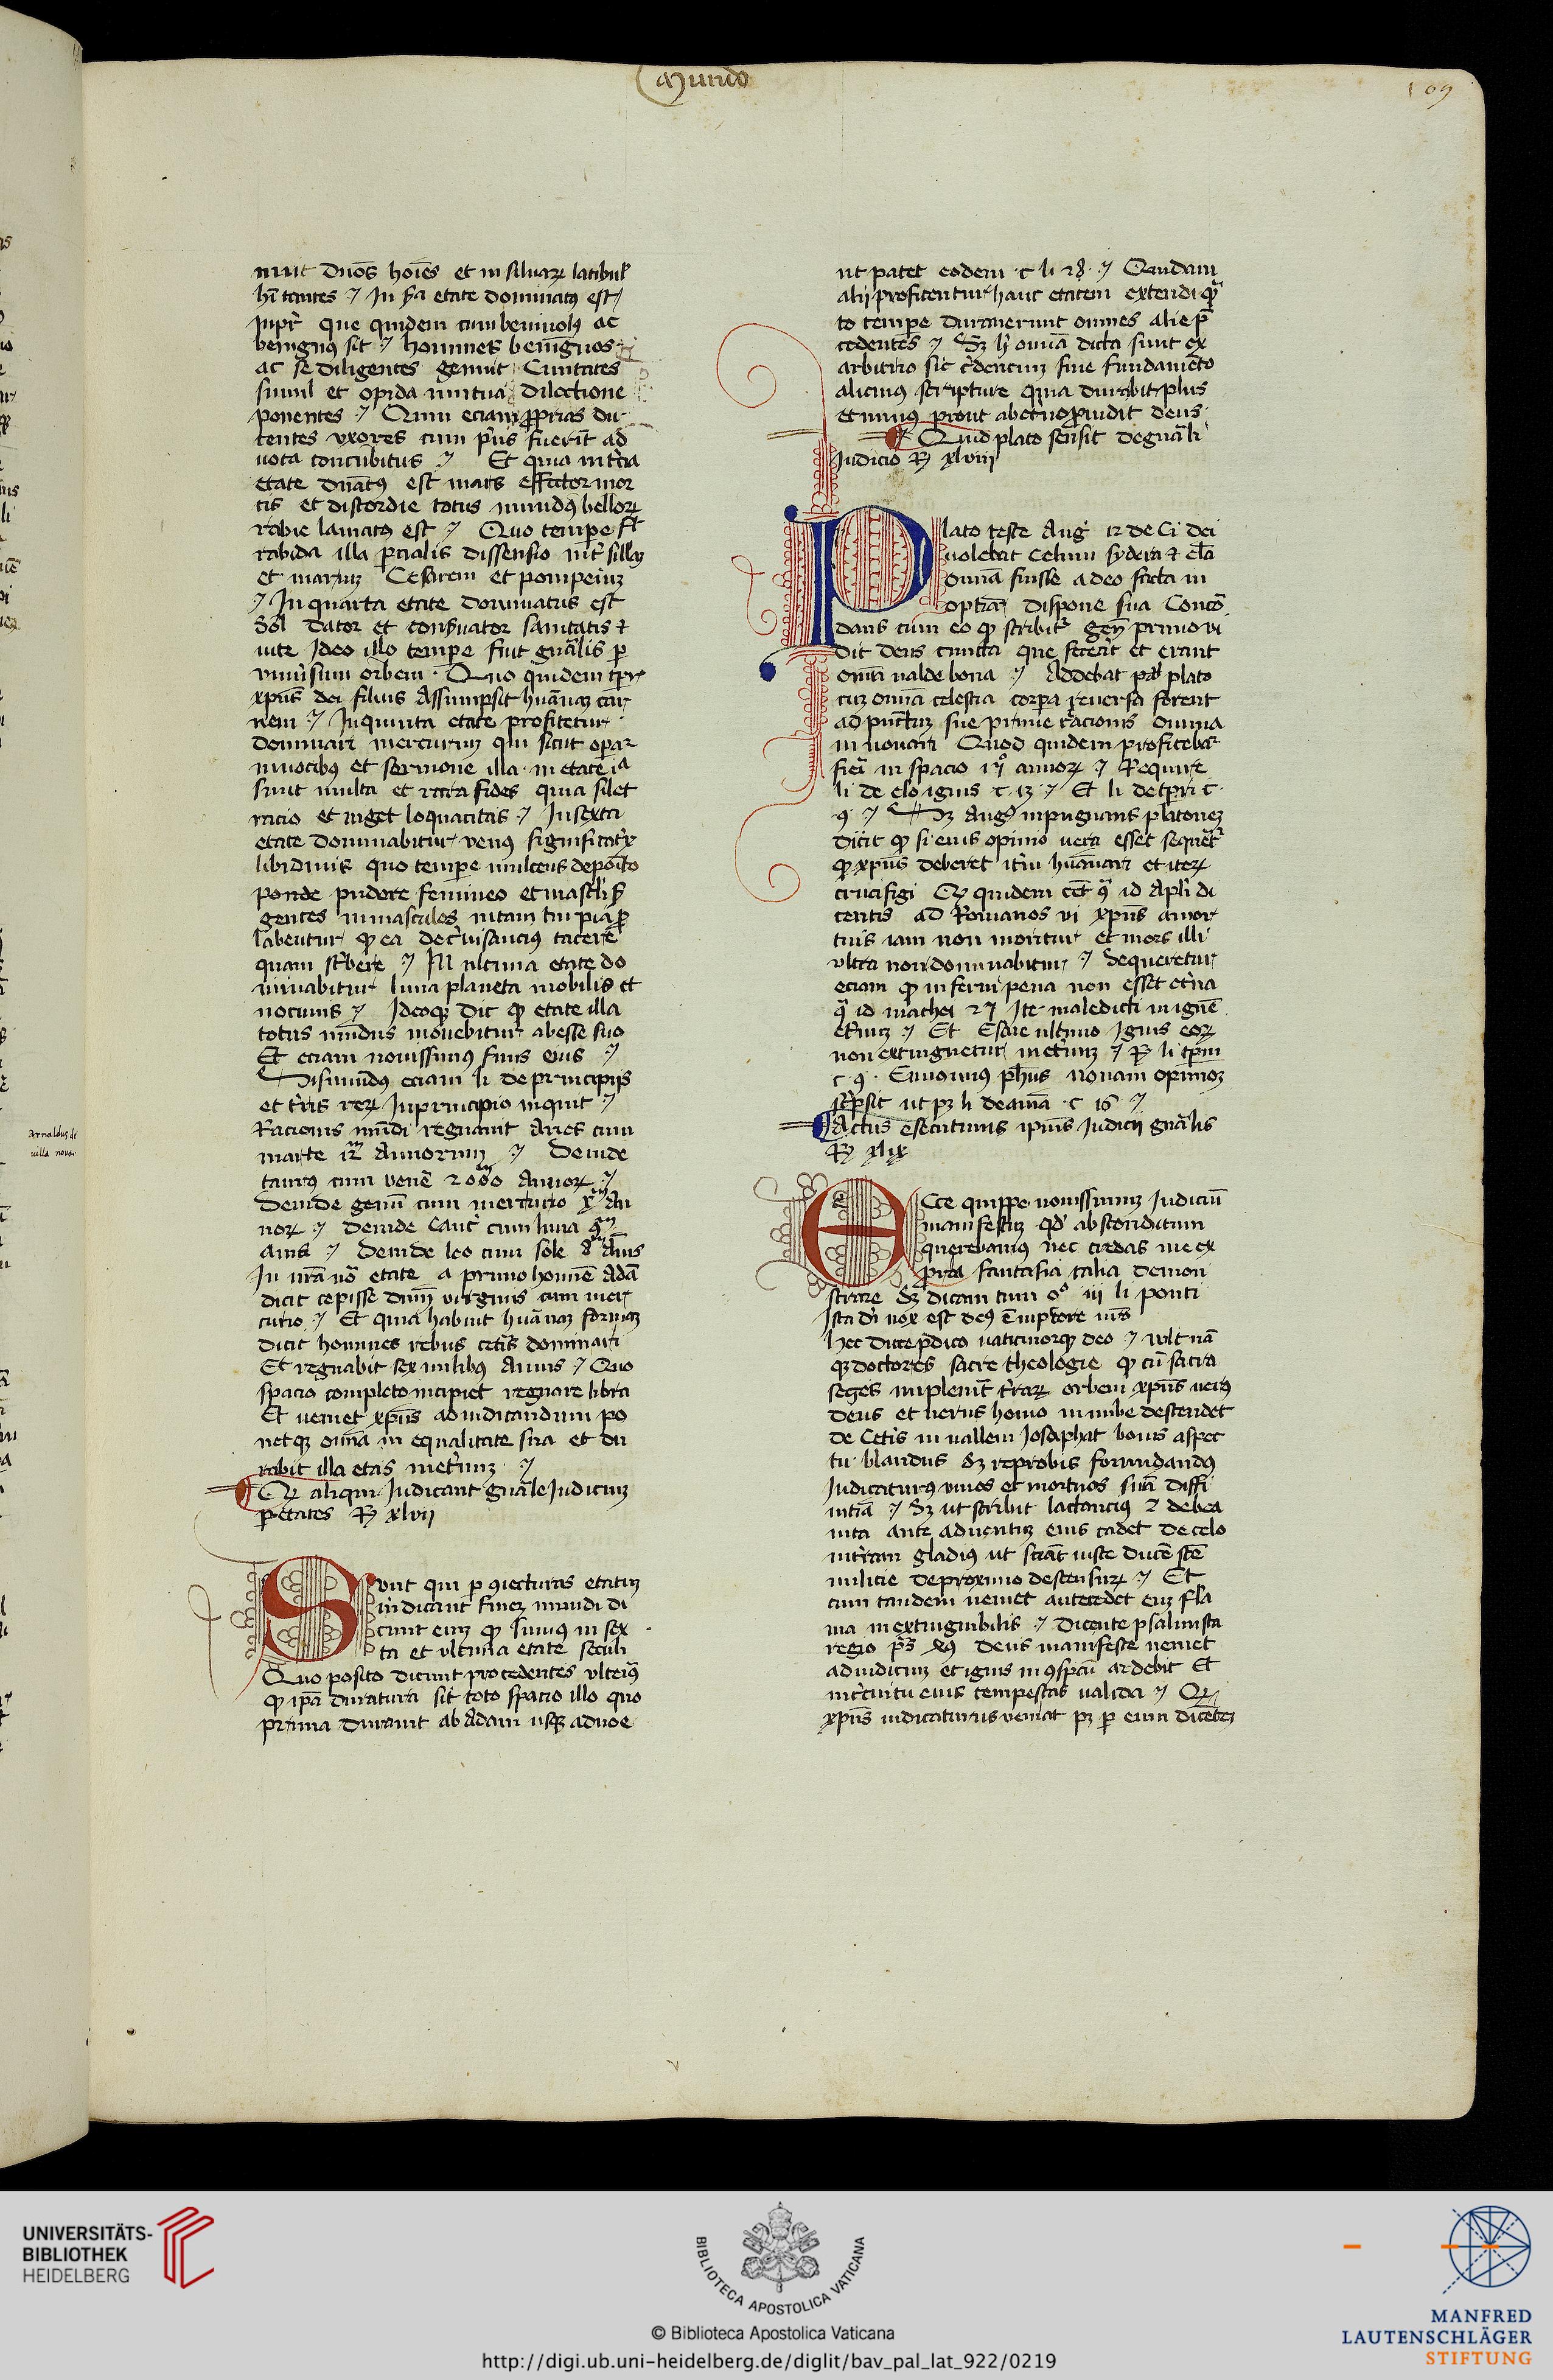 Mundo
109
nuit duos̄ hoīes et in siluaꝝ latibul̉
hītantes ⁊ In ẜa etate dominatꝰ est
Jupr̉ que quidem cum beniuolꝰ ac
benignus sit ⁊ homines benignos
ac se diligentes genuit Ciuitates
simul et opida mutua dilectione
ponentes ⁊ Quin eciam ꝓprias du
centes vxores cum pͥus fuerīt ad
uota concubitus ⁊ Et quia in tͨia
etate dn̄atꝰ est mars effector mor
tis et discordie totus mundꝰ belloꝝ
rabie laniatꝰ est ⁊ Quo tempe
rabida illa ꝑcialis dissensio int̉ sillaꝫ
et mariuꝫ Cesarem et pompeiuꝫ
⁊ In quarta etate dominatus est
Sol dator et conẜuator sanitatis ⁊
uite Ideo illo tempe fuit gn̄alis ꝑ
vniuersum orbem Quo quidem tꝑe
xp̄us dei filius Assumpsit huānaꝫ car
nem ⁊ In quinta etate profitetur
dominari mercuriuꝫ qui sicut opar̉
in uocibꝰ et sermone illa in etate
sunt multa et rara fides quia silet
racio et uiget loquacitas ⁊ In sexta
etate dominabitur venus significatͥx
libidinis quo tempe
ponde pudore femineo et
gentes in masculos
labentur ꝙ ea
quam sc̉bere ⁊ In ultima etate do
minabitur luna planeta mobilis et
nociuus ⁊ Ideoqꝫ dic̄ ꝙ etate illa
totus mūdus mouebitur ab esse suo
Et eciam nouissimus finis eius ⁊
eciam li de principijs
et t̉ris reꝝ In principio inquit ⁊
Racionis mūdi regnauit Aries cum
marte 12ᵐ Annorum ⁊ Deinde
taurꝰ cum venē 2000 Annoꝝ ⁊
Deinde gemī cum mercurio xᵐ An
noꝝ ⁊ Deinde Canc̉ cum luna 9ᵐ
Anis ⁊ Deinde leo cum sole 8ᵐ Anis
In nr̄a uō etate a primo homīe Adā
dicit cepisse dn̄iū virginis cum mer
curio ⁊ Et quia habuit huānaꝫ formaꝫ
dicit homines rebus cet̉is dominari
Et regnabit sex milibꝰ Annis ⁊ Quo
spacio completo incipiet regnare libra
Et ueniet xp̄us ad iudicandum po
netqꝫ oīna in equalitate sua et du
rabit illa etas inet̉nuꝫ ⁊
Qꝝ aliqui Iudicant gn̄ale Iudiciuꝫ
ꝑ etates ꝶ xlvij
Sunt qui ꝑ ꝯiecturas etatuꝫ
iudicant fineꝫ mundi di
cunt eniꝫ ꝙ sumus in sex
ta et vltima etate seculi
Quo posito dicunt procedentes vlteriꝰ
ꝙ ip̄a duratura sit toto spacio illo quo
prima durauit ab Adam usqꝫ ad noe
Arnaldus de
uilla noua
ut patet eodem c li 28 ⁊ Quidam
alij profitentur hanc etatem extendi qn̄
to tempe durauerunt omnes alie p̄
cedentes ⁊ Sꝫ hͥ omīa dicta sunt ex
arbitrio sic c̉denciuꝫ sine fundamēto
alicuius scripture quia durabit plus
et minus prout ab et̉no ꝓuidit deus
Quid plato sensit de gn̄ali
Iudicio ꝶ xlviij
Plato teste Aug̉ 12 de Ci dei
uolebat Celum sydera ⁊ eltā
omīa fuisse a deo facta in
optīa dispone sua Concor
dans cum eo ꝙ scribit̉ gen̄ primo vi
dit deus cuncta que fecerat et erant
omīa ualde bona ⁊ Addebat plato
cuꝫ omīa celestia corpa reuersa forent
ad punctuꝫ sue prime racionis omnia
in nouari Quod quidem profitebar
fieri in spacio annoꝝ ⁊ Require
li de elo ignis c 13 ⁊ Et li de tꝑri c
9 ⁊ Sꝫ Augꝰ inpugnans platoneꝫ
dicit ꝙ si eius opinio uera esset seq̄ret̉
ꝙ xp̄us deberet it̉m huānari et iteꝝ
crucifigi Qꝝ quidem est ꝯͣ id Apl̉i di
centis ad Romanos vi xp̄us a mor
tuis iam non moritur et mors illi
vltra non dominabitur ⁊ Sequeretur
eciam ꝙ inferni pena non esset et̉na
ꝯͣ id mathei 25 Ite maledicti in ignē
et̉nuꝫ ⁊ Et Esaie ultimo Ignis eoꝝ
non extinguetur inet̉nuꝫ ⁊ ꝶ li tꝑm
c 9 Eunomius ph̄us nouam opinioꝫ
scͥpsit ut pꝫ li de aīma c 16 ⁊
Actus esecutiuus ip̄ius Iudicij gn̄alis
ꝶ xlix
Ecce quippe nouissimuꝫ Iudiciū
manifestuꝫ qd̉ absconditum
querebamus nec credas me ex
pͥa fantasia talia demon
strare Sꝫ dicam cum oͦ iij li ponti
Ista dī uox est deꝰ ē inpcore nr̄o
hec duce p̄dico uaticinorqꝫ deo ⁊ uult nā
qꝫ doctores sacre theologie ꝙ cū sacra
seges impleuīt t̉raꝝ orbem xp̄us uerꝰ
deus et uerus homo in nube descendet
de Celis in uallem Iosaphat bonis aspec
tu blandus Sꝫ reprobis formidandꝰ
Iudicaturꝰ viuos et mortuos sm̄ diffi
nitiā ⁊ Sꝫ ut scribit lactancius 7 de bea
uita ante aduentuꝫ eius cadet de celo
in t̉ram gladiꝰ ut sciāt iuste ducē sc̄e
milicie de proximo descensuꝝ ⁊ Et
cum tandem ueniet antecedet euꝫ fla
ma inextinguibilis ⁊ Dicente psalmista
regio Deus manifeste ueniet
ad iudiciuꝫ et ignis in ꝯspcū ardebit Et
incͥcuitu eius tempestas ualida ⁊ Qꝝ
xp̄us iudicaturus ueniat pꝫ ꝑ eum dicēteꝫ
UNIVERSITÄTS-
BIBLIOTHEK
HEIDELBERG
BIBLIOTECA APOSTOLICA VATICANA
© Biblioteca Apostolica Vaticana
http://digi.ub.uni-heidelberg.de/diglit/bav_pal_lat_922/0219
MANFRED
LAUTENSCHLÄGER
STIFTUNG